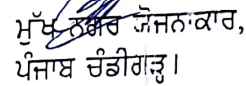 ਮੁੱਖ ਨਗਰ ਯੋਜਨਾਕਾਰ,
ਪੰਜਾਬ ਚੰਡੀਗੜ੍ਹ।